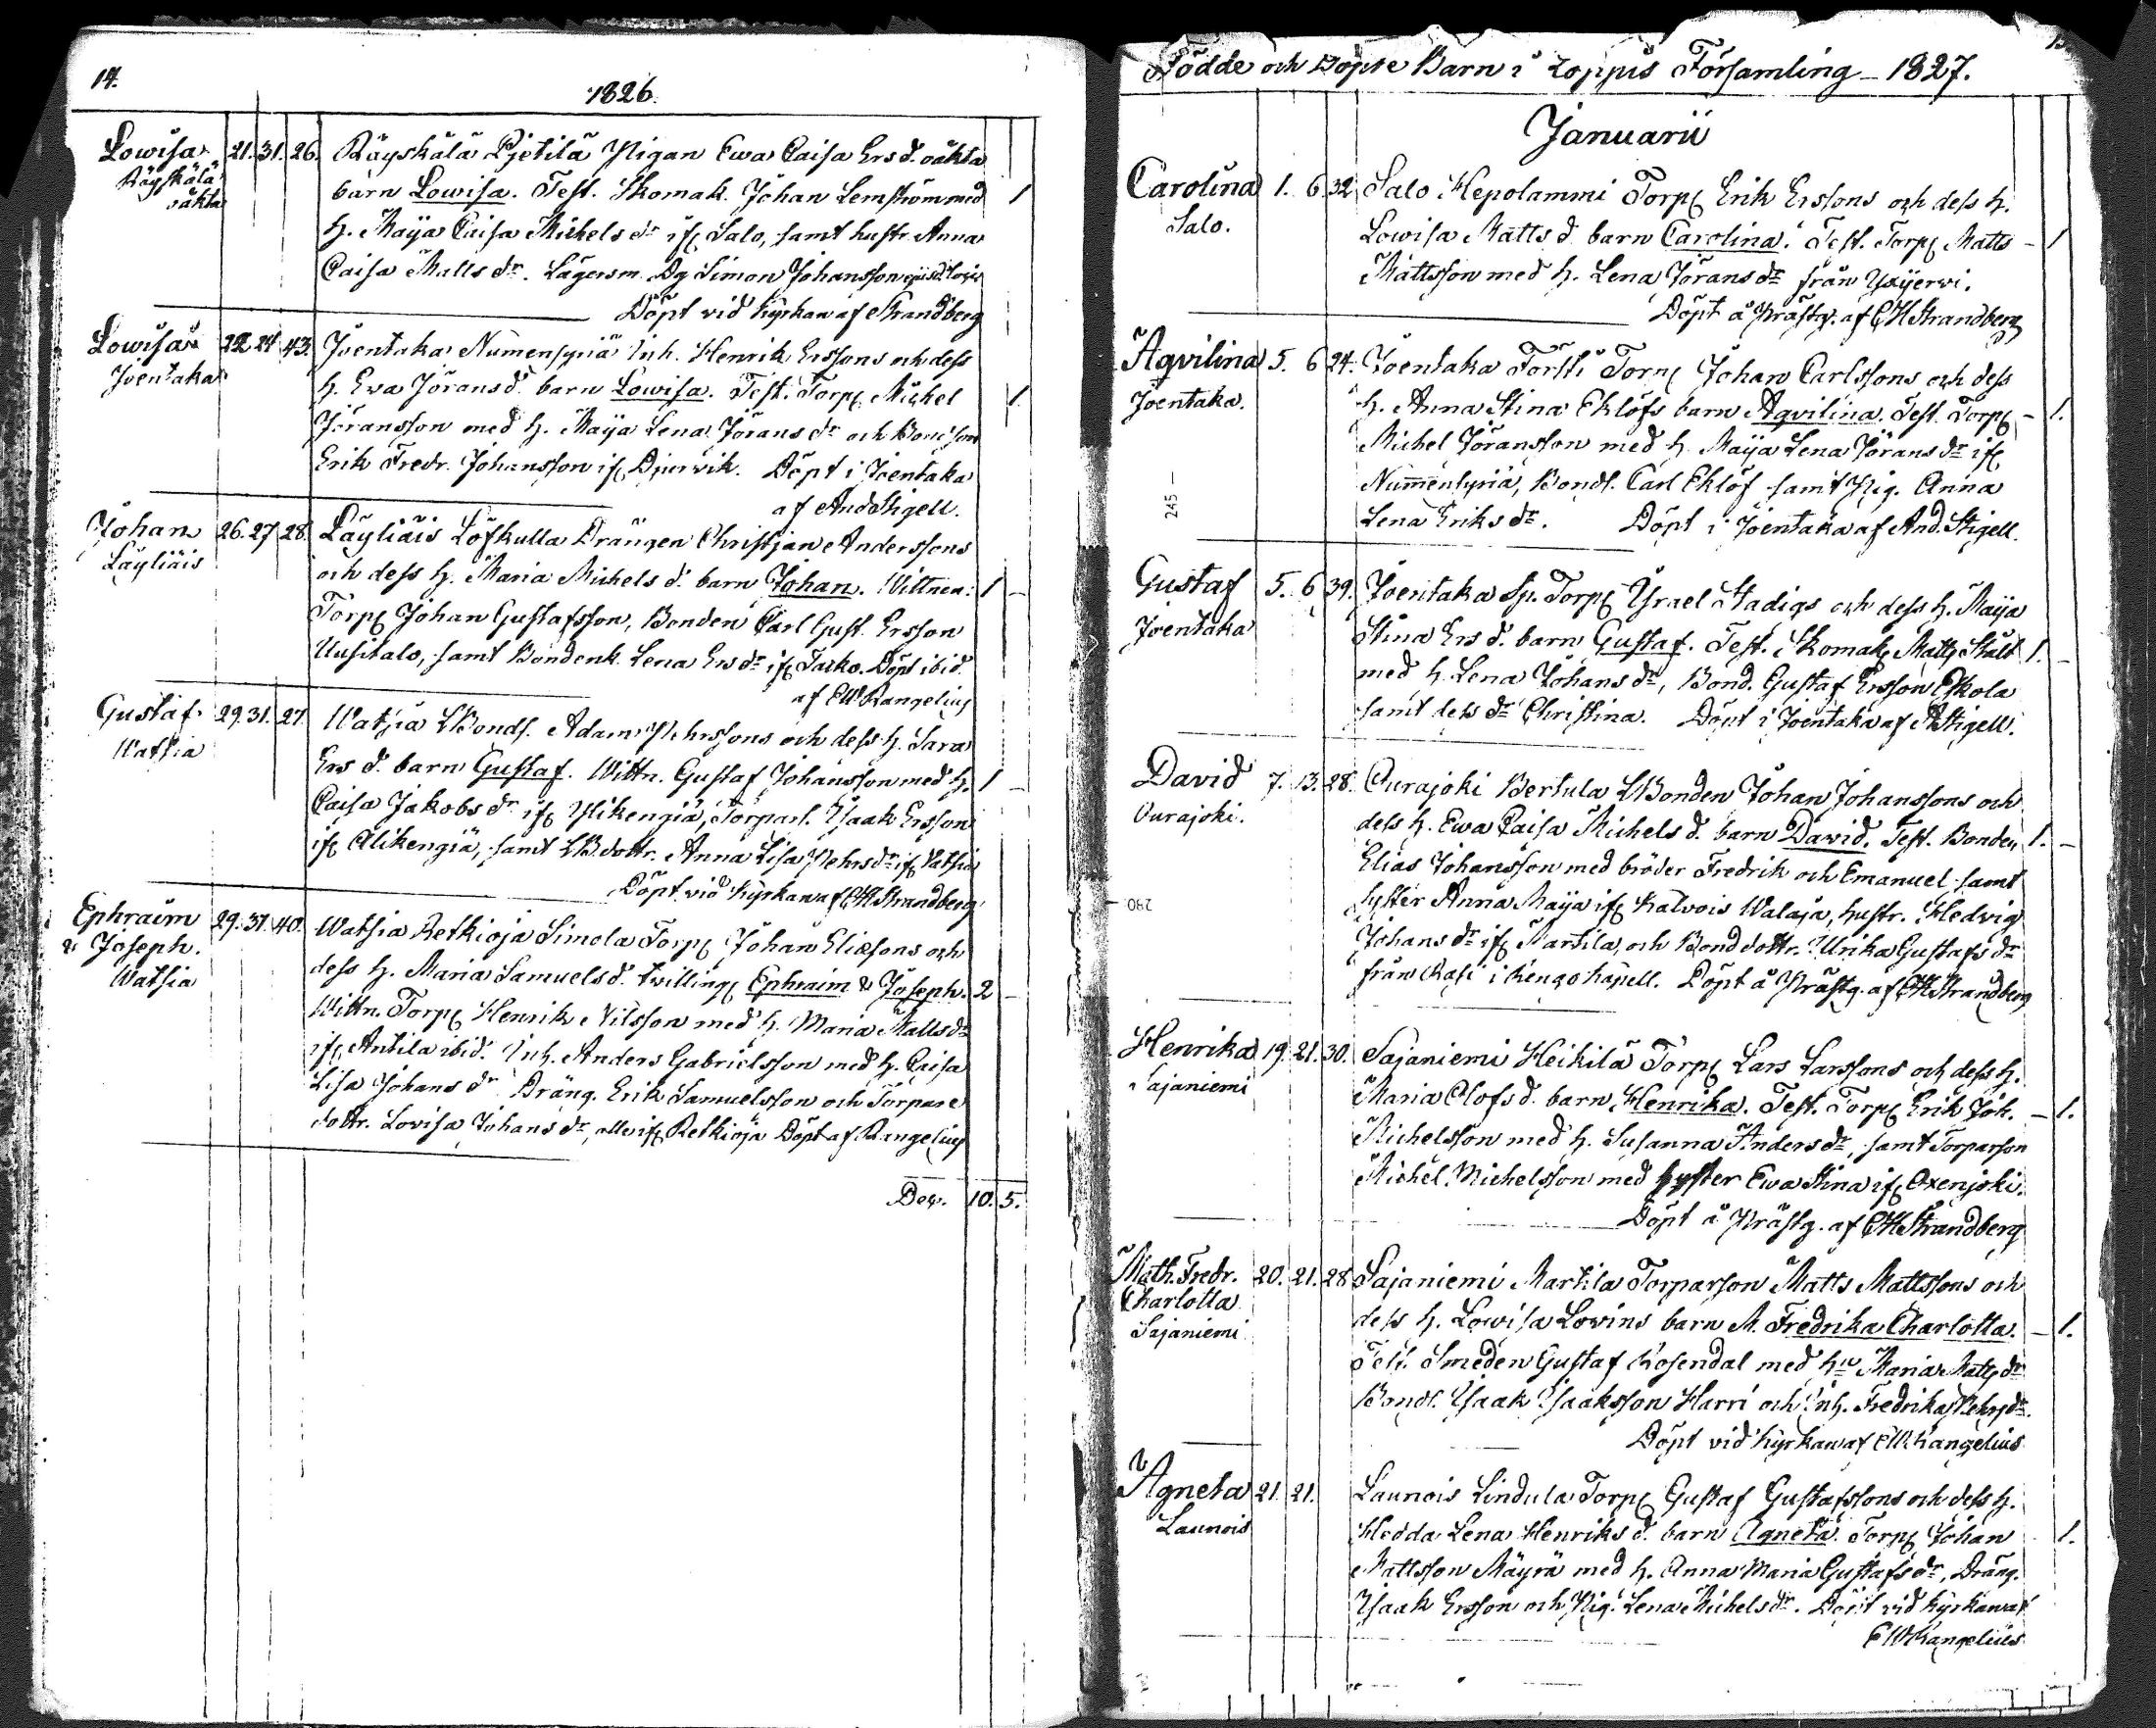 14.
1826.
Lowisa 21. 31. 26. Räyskälä Pjetilä Pigan Ewa Caisa Ers d. oäkta
Räyskälä
oäkta
barn Lowisa. Test. Skomak. Johan Lemström med 1
h. Maija Caisa Michels dr ifr Salo, samt hustr. Anna
Caisa Matts dr. Lägersm. Dg Simon Johansson
Döpt vid Kyrkan af Strandberg
Lowisa 22 24 43. Joentaka Numenpyiä Inh. Henrik Erssons och dess
Joentaka
h. Ewa Jörans d. barn Lowisa. Test. Torp. Michel 1.
Jöransson med h. Maija Lena Jörans dr och Bondson
Erik Fredr. Johansson ifr Djervik. Döpt i Joentaka
af And Stigell.
Johan 26. 27 28. Läyliäis Löfkulla Drängen Christjan Anderssons
Läyliäis
och dess h. Maria Michels d. barn Johan. Wittnen: 1 –
Torp. Johan Gustafsson, Bonden Carl Gust. Ersson
Uusitalo, samt Bondenk. Lena Ers dr ifr Tarko. Döpt ibid.
af EW Rangelius
Gustaf 29. 31. 27. Watsia LBonds. Adam Pehrssons och dess h. Sara
Watsia
Ers d. barn Gustaf. Wittn. Gustaf Johansson med h. 1 –
Caisa Jakobs dr ifr Ylikengiä, Torpars. Isaak Ersson
ifr Alikengiä, samt LBdottr. Anna Lisa Pehrsdr ifr Watsia
Döpt vid Kyrkan af CH Strandberg
Ephraim 29. 31. 40. Watsia Retkioja Simola Torp. Johan Eliæsons och
& Joseph.
Watsia
dess h. Maria Samuelsd. twilling. Ephraim & Joseph. 2 –
Wittn. Torp. Henrik Nilsson med h. Maria Matts dr
ifr Antila ibid. Inh. Anders Gabrielsson med h. Caisa
Lisa Johans dr Dräng. Erik Samuelsson och Torpare
dottr. Lovisa Johans dr, alle ifr Retkioja Döpt af Rangelius
Dec. 10. 5.
Födde och Döpte Barn i Loppis Församling – 1827.
Januarii
Carolina 1. 6 32 Salo Hepolammi Torp. Erik Erssons och dess h.
Salo.
Lowisa Matts d. barn Carolina. Test. Torp. Matts – 1
Mattsson med h. Lena Jörans dr från Yxijerwi.
Döpt å Prästg. af CH Strandberg
Aqvilina 5. 6 24. Joentaka Forsti Torp. Johan Carlssons och dess
Joentaka.
h. Anna Stina Eklöfs barn Aqvilina. Test. Torp. – 1.
Michel Jöransson med h. Maija Lena Jörans dr ifr
Numenpyiä, Bonds. Carl Eklöf samt Pig. Anna
Lena Eriks dr. Döpt i Joentaka af And. Stigell.
245 –
Gustaf 5. 6 39. Joentaka Sp. Torp. Israel Stadigs och dess h. Maija
Joentaka
Stina Ers d. barn Gustaf. Test. Skomak. Matts Stålt 1. –
med h. Lena Johans dr, Bond. Gustaf Ersson Eskola
samt dess dr Christina. Döpt i Joentaka af A Stigell.
David 7. 13. 28. Ourajoki Bertula LBonden Johan Johanssons och
Ourajoki.
dess h. Ewa Caisa Michels d. barn Dawid. Test. Bonden 1. –
Elias Johansson med bröder Fredrik och Emanuel samt
syster Anna Maija ifr Kalvois Walaja, hustr. Hedvig
Johans dr ifr Martila, och Bonddottr. Ulrika Gustafs dr
från Kasi i Rengo kapell. Döpt å Prästg. af CH Strandberg
280
Henrika 19. 21. 30. Sajaniemi Heikilä Torp. Lars Larssons och dess h.
Sajaniemi
Maria Olofs d. barn Henrika. Test. Torp. Erik Joh. – 1.
Michelsson med h. Susanna Anders dr, samt Torparson
Michel Michelsson med syster Ewa Stina ifr Oxenjoki.
Döpt å Prästg. af CH Strandberg
Math. Fredr. 20. 21. 28 Sajaniemi Martila Torparson Matts Mattssons och
Charlotta
Sajaniemi
dess h. Lowisa Lowins barn M. Fredrika Charlotta. – 1.
Test. Smeden Gustaf Rosendal med hu Maria Matts dr
Bonds. Isaak Isaksson Harri och Inh. Fredrika Pehrs dr.
Döpt vid Kyrkan af EW Rangelius
Agneta 21. 21. Launois Lindula Torp. Gustaf Gustafssons och dess h.
Launois
Hedda Lena Henriks d. barn Agneta. Torp. Johan 1.
Mattsson Mäyrä med h. Anna Maria Gustafs dr, Dräng.
Isaak Ersson och Pig. Lena Michels dr. Döpt vid Kyrkan af
EW Rangelius